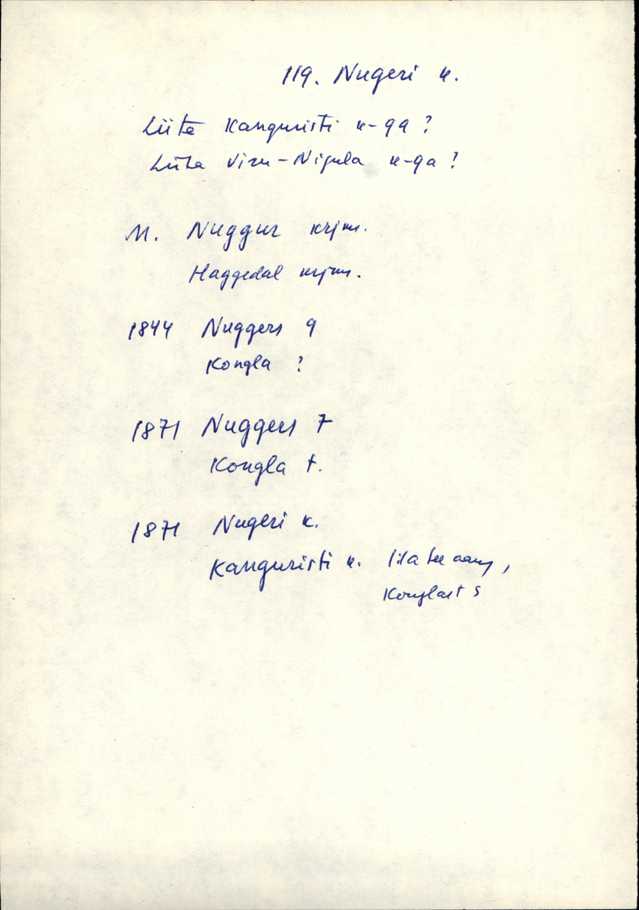 119. Nugeri k.
Liita Kanguristi k-ga?
Liita Viru-Nigula k-ga?
M. Nuggur krjm.
Haggedal krjm.
1844 Nuggers 9
Kongla ?
1871 Nuggers 7
Kongla t.
1871 Nugeri k.
Kanguristi k.
Konglast S